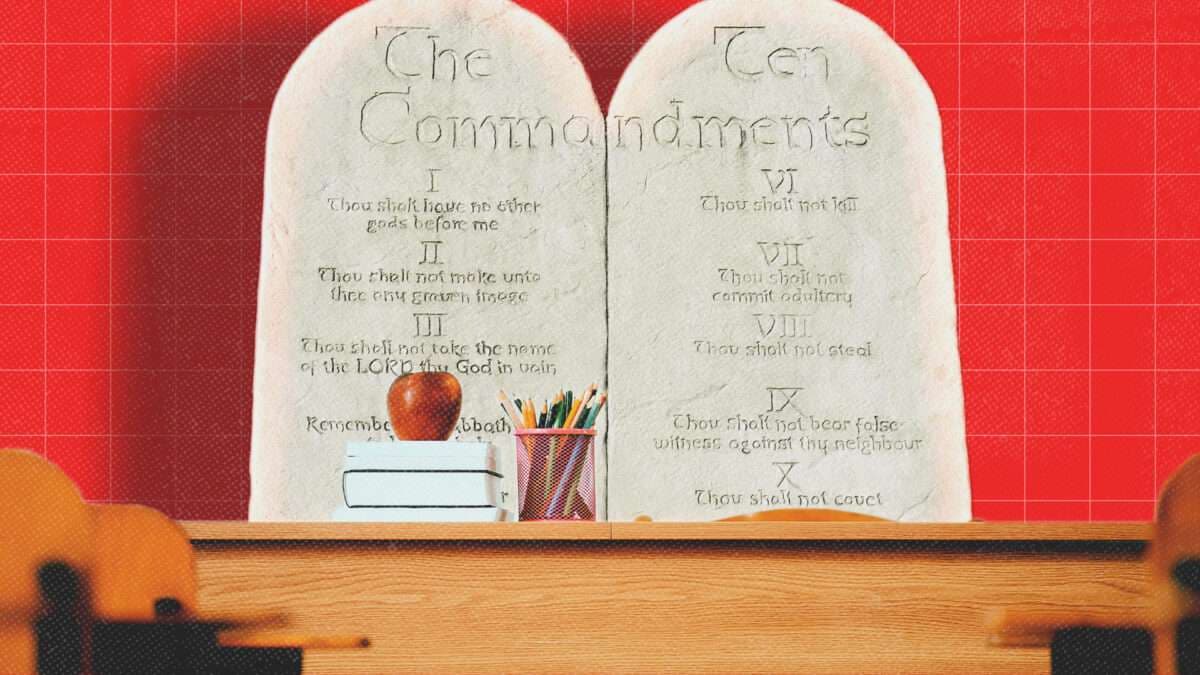 The Ten
Commandments
I
Thou shall have no other
gods before me
II
Thou shall not make unto
thee any graven image
III
Thou shall not take the name
of the LORD thy God in vain
VI
Thou shall not kill
VII
Thou shall not
commit adultery
VIII
Thou shall not steal
IX
Thou shall not bear false
witness against thy neighbour
X
Thou shall not covet